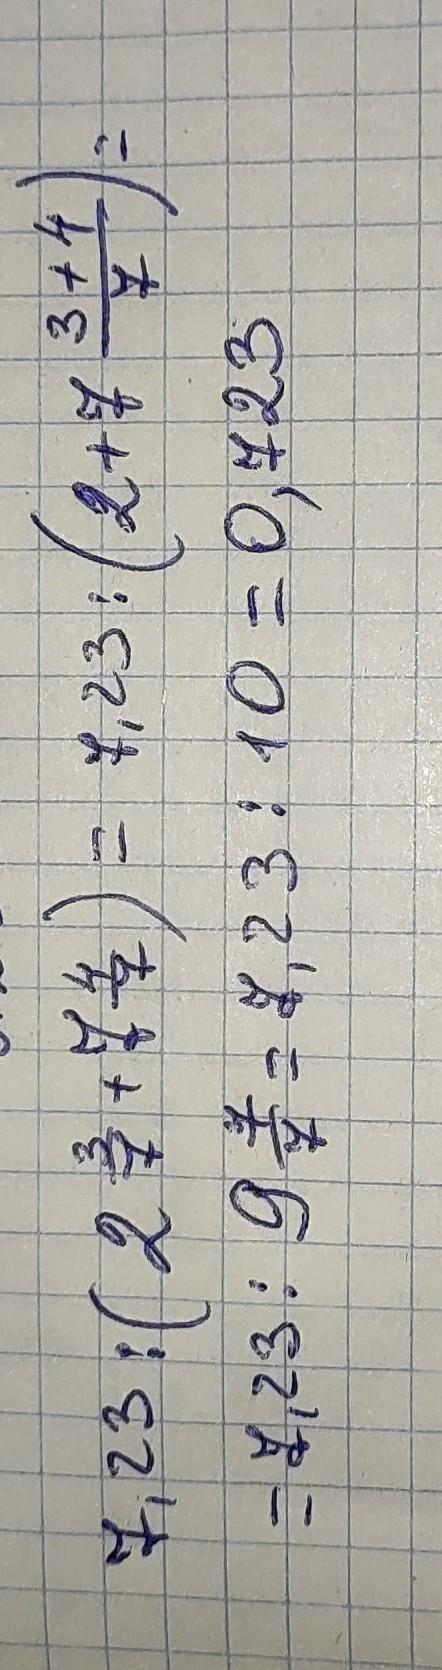 7,23 : (2 3/7 + 7 4/7) = 7,23 : (2 + 7 (3+4)/7) =
= 7,23 : 9 7/7 = 7,23 : 10 = 0,723